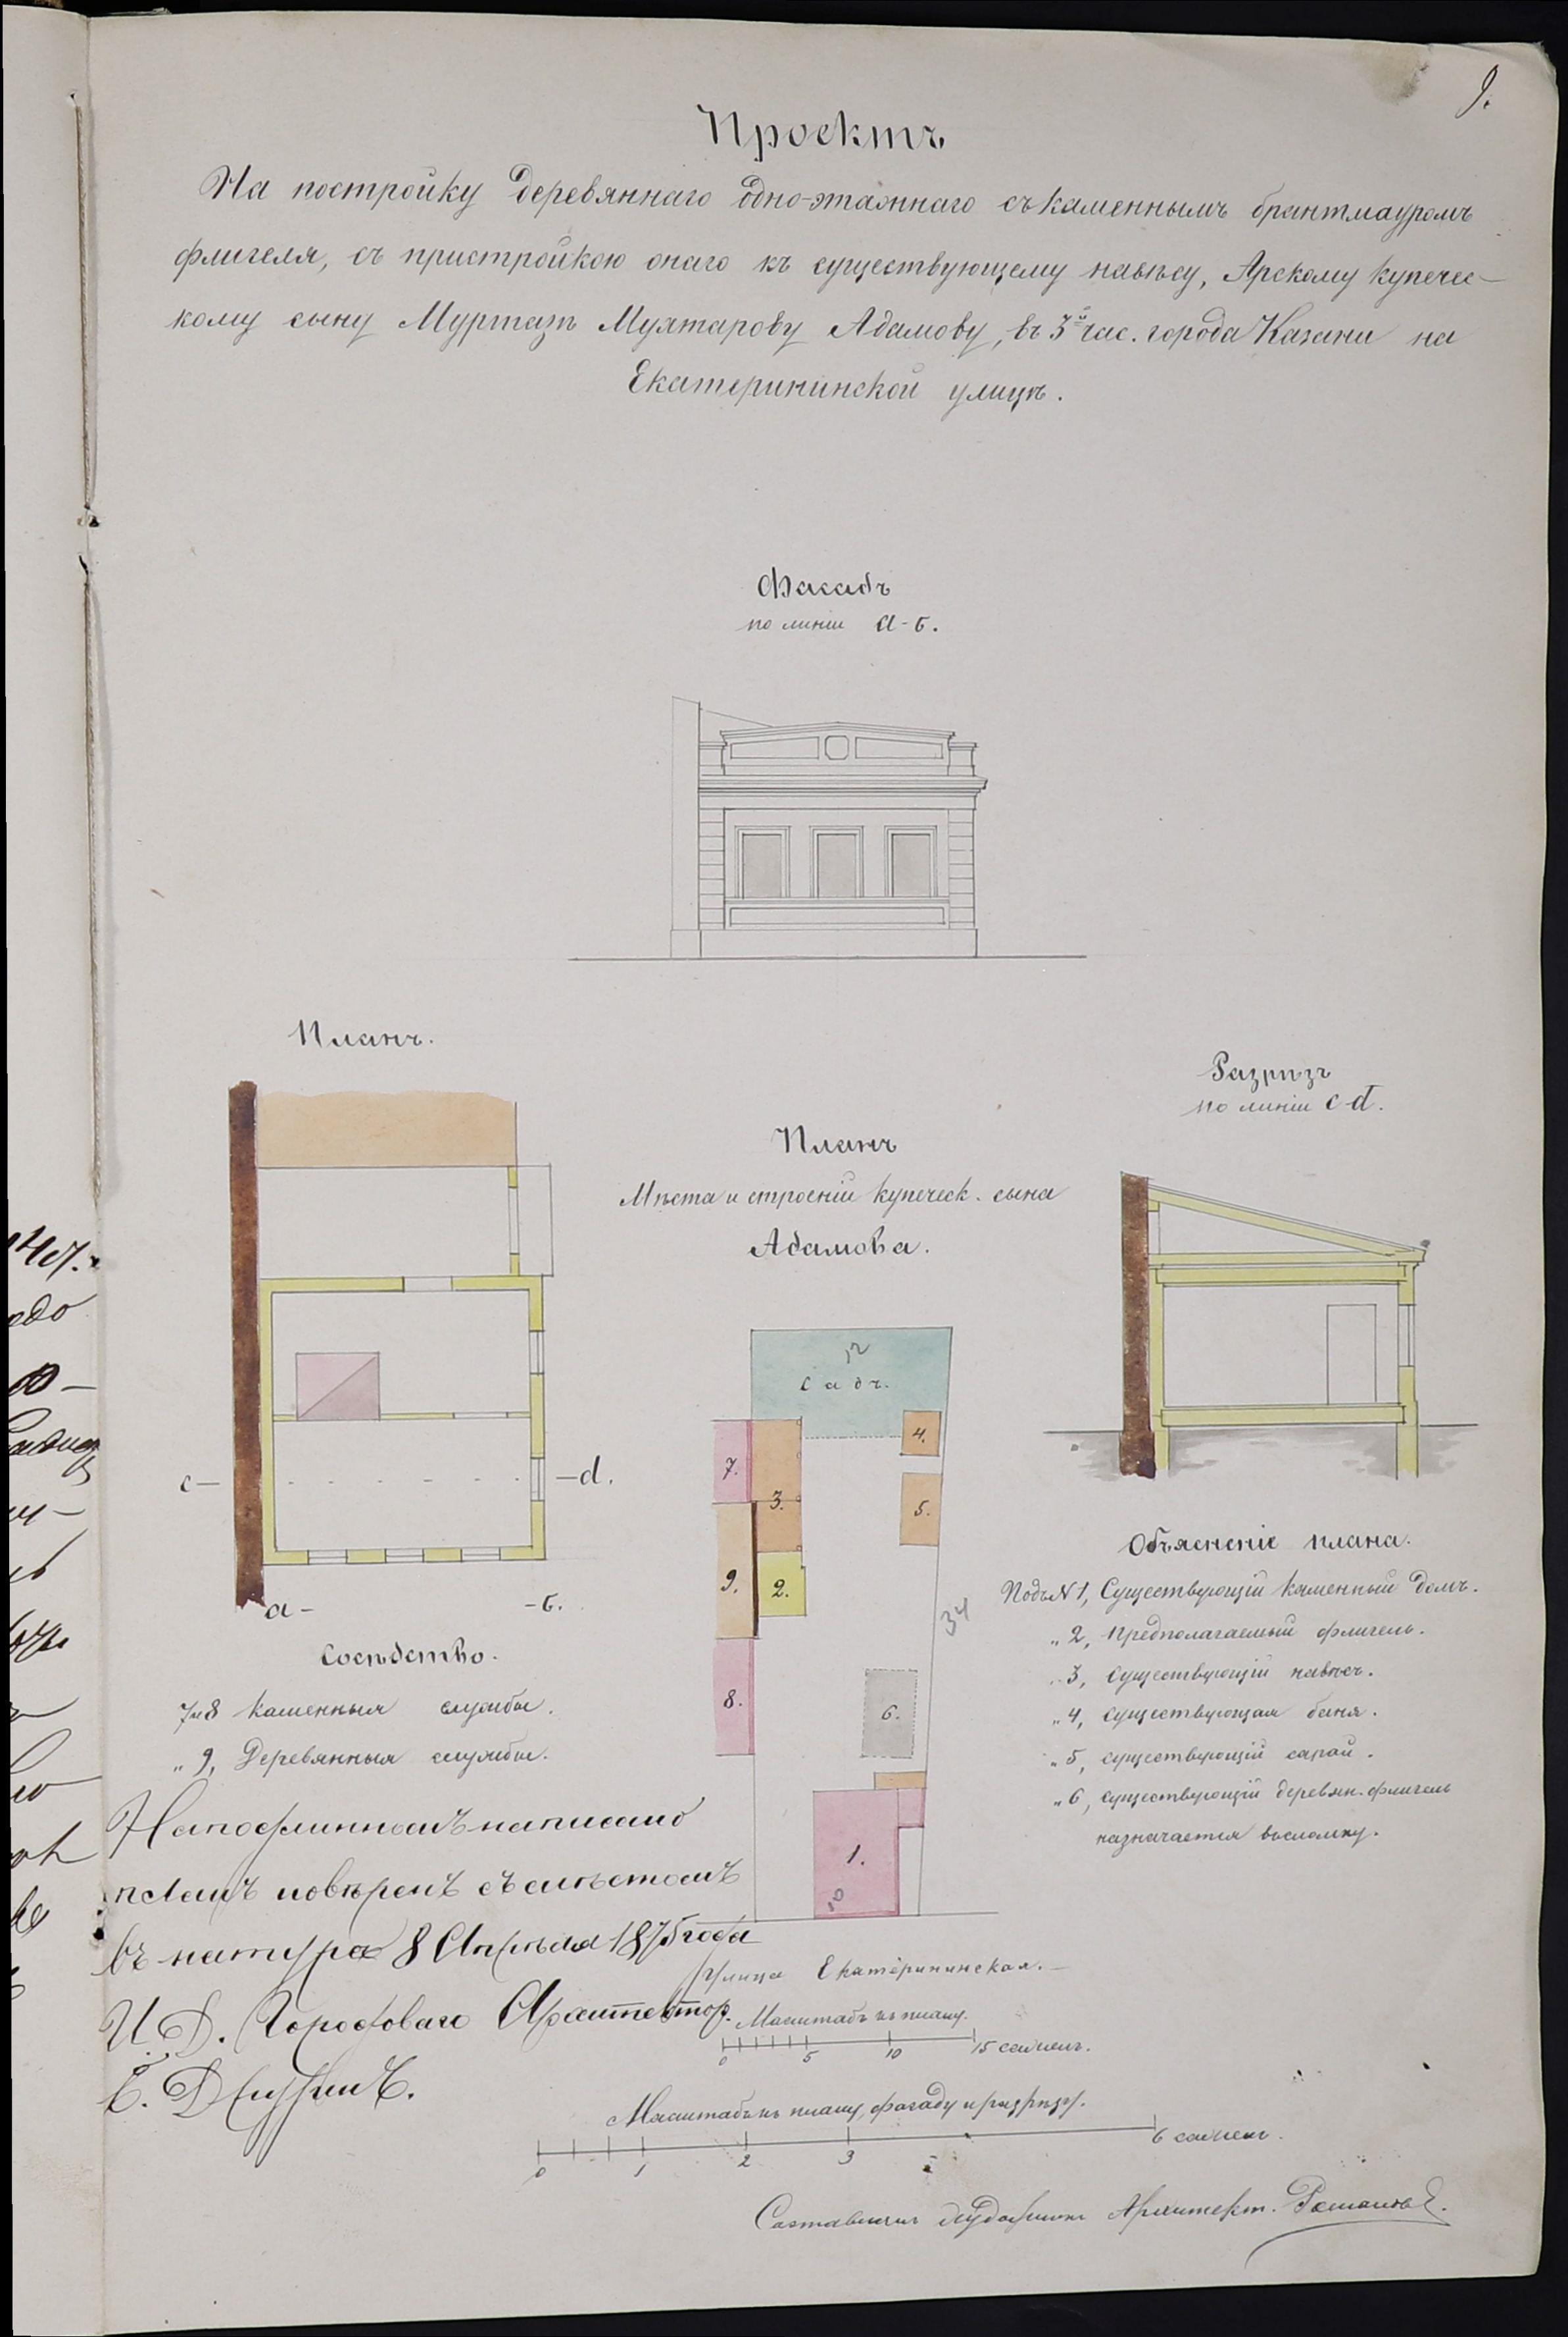 9.
Проектъ
На постройку деревяннаго одно-этажнаго съ каменнымъ брантмауромъ
флигеля, съ пристройкою онаго къ существующему навѣсу, Арскому купечес-
кому сыну Муртазѣ Мухтарову Адамову, въ 3й час. города Казани на
Екатерининской улицѣ.
Фасадъ
по линіи а-б.
Планъ.
с- -d.
а- -б.
Разрѣзъ
по линіи с-d.
Планъ
Мѣста и строеній купеческ. сына
Адамова.
12
Садъ.
4.
7.
3.
5.
9.
2.
34
8.
6.
1.
10
Улица Екатерининская.
Масштабъ къ плану.
0 5 10 15 сажень.
Сосѣдство.
7и8 каменныя службы.
„ 9, Деревянныя службы.
Объясненіе плана.
Подъ №1, Существующій каменный домъ.
„ 2, предполагаемый флигель.
„ 3, существующій навѣсъ.
„ 4, существующая баня.
„ 5, существующій сарай.
„ 6, существующій деревян. флигель
назначается въ сломку.
На подлинномъ написано
планъ повѣренъ съ мѣстомъ
въ натурѣ 8 Апрѣля 1875 года
И.Д. Городоваго Архитектор.
Масштабъ къ плану, фасаду и разрѣзу.
0 1 2 3 6 сажень.
Составилъ Архитект. Романовъ